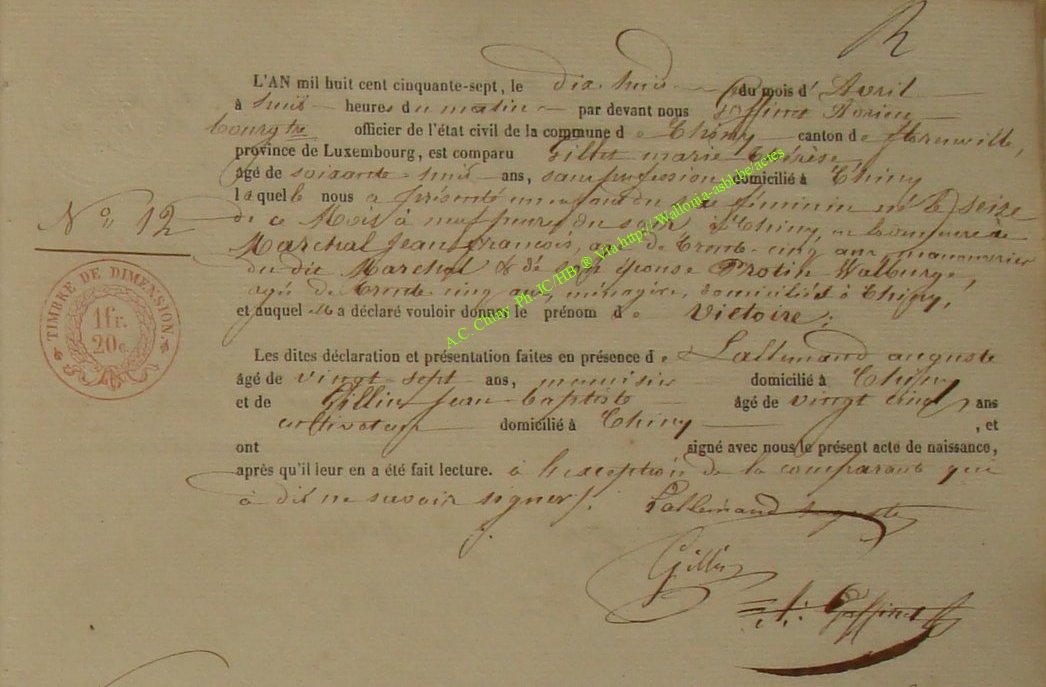 L'AN mil huit cent cinquante-sept, le dix huit du mois d' Avril
à huit heures du matin par devant nous Goffinet Adrien
bourgtre officier de l'état civil de la commune de Chiny canton de florenville,
province de Luxembourg, est comparu Gillet marie Thérèse,
âgé de soixante-huit ans, sans profession domicilié à Chiny
laquelle nous a présenté un enfant du sexe féminin né le seize
N° 12
de ce Mois à neuf heures du soir à Chiny, en la demeure de
Marchal Jean François, agé de trente-cinq ans, manouvrier
du dit Marchal & de son épouse Protin Walburge,
agée de trente cinq ans, ménagère, domiciliés à Chiny,
et auquel a déclaré vouloir donner le prénom de Victoire;
TIMBRE DE DIMENSION
1 fr.
20 c.
Les dites déclaration et présentation faites en présence de Lallemand auguste
âgé de vingt-sept ans, domicilié à Chiny
et de Gillin Jean-baptiste âgé de vingt cinq ans
cultivateur domicilié à Chiny , et
ont signé avec nous le présent acte de naissance,
après qu'il leur en a été fait lecture. à l'exception de la comparante qui
a dit ne savoir signer.
Lallemand auguste
Gillin
A. Goffinet
A.C. Chiny Ph JC/HB ® Via http://Wallonia-asbl.be/actes